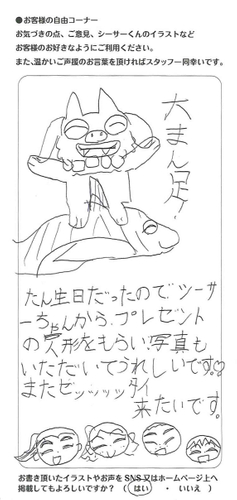 ●お客様の自由コーナー
お気づきの点、ご意見、シーサーくんのイラストなど
お客様のお好きなようにご利用ください。
また、温かいご声援のお言葉を頂ければスタッフ一同幸いです。
大まん足!
たん生日だったのでシーサ
ーちゃんから、プレゼント
の人形をもらい写真も
いただいてうれしいです♡
またゼッッッッタイ
来たいです。
お書き頂いたイラストやお声をSNS又はホームページ上へ
掲載してもよろしいですか? ( はい ・ いいえ )